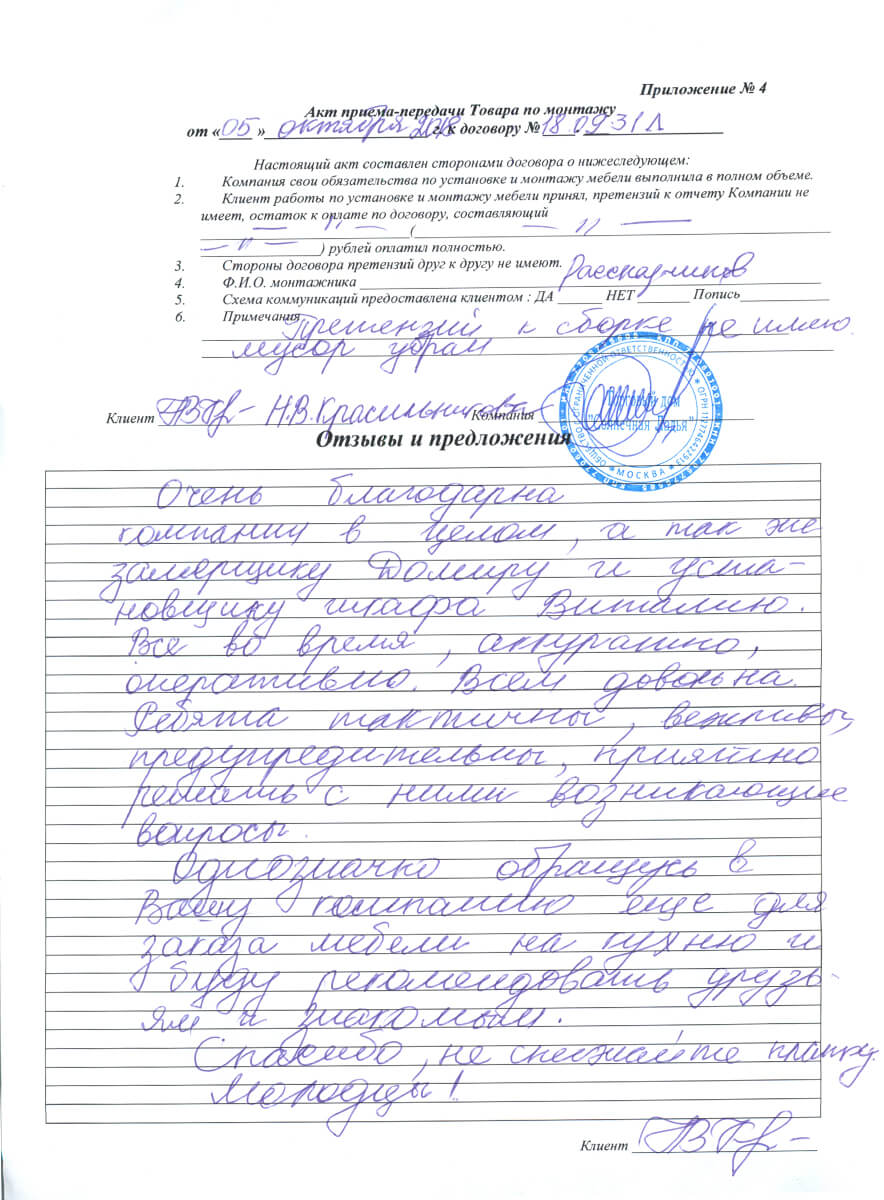 Приложение № 4
Акт приема-передачи Товара по монтажу
от «05» октября 2018 г. к договору № 18.09 31 Л
Настоящий акт составлен сторонами договора о нижеследующем:
1. Компания свои обязательства по установке и монтажу мебели выполнила в полном объеме.
2. Клиент работы по установке и монтажу мебели принял, претензий к отчету Компании не
имеет, остаток к оплате по договору, составляющий
— 〃 — ( — 〃 —
— 〃 — ) рублей оплатил полностью.
3. Стороны договора претензий друг к другу не имеют.
4. Ф.И.О. монтажника Рассказчиков
5. Схема коммуникаций предоставлена клиентом : ДА ______ НЕТ ______ Попись____________
6. Примечания Претензий к сборке не имею.
мусор убран
Клиент Н.В.Красильникова Компания
ОБЩЕСТВО С ОГРАНИЧЕННОЙ ОТВЕТСТВЕННОСТЬЮ
Торговый дом
"Солнечная Ладья"
МОСКВА
Отзывы и предложения
Очень благодарна
компании в целом, а так же
замерщику Домиру и уста-
новщику шкафа Виталию.
Все во время, аккуратно,
оперативно. Всем довольна.
Ребята тактичны, вежливы,
предупредительны, приятно
решать с ними возникающие
вопросы.
Однозначно обращусь в
Вашу компанию еще для
заказа мебели на кухню и
буду рекомендовать друзь-
ям и знакомым.
Спасибо, не снижайте планку.
Молодцы!
Клиент